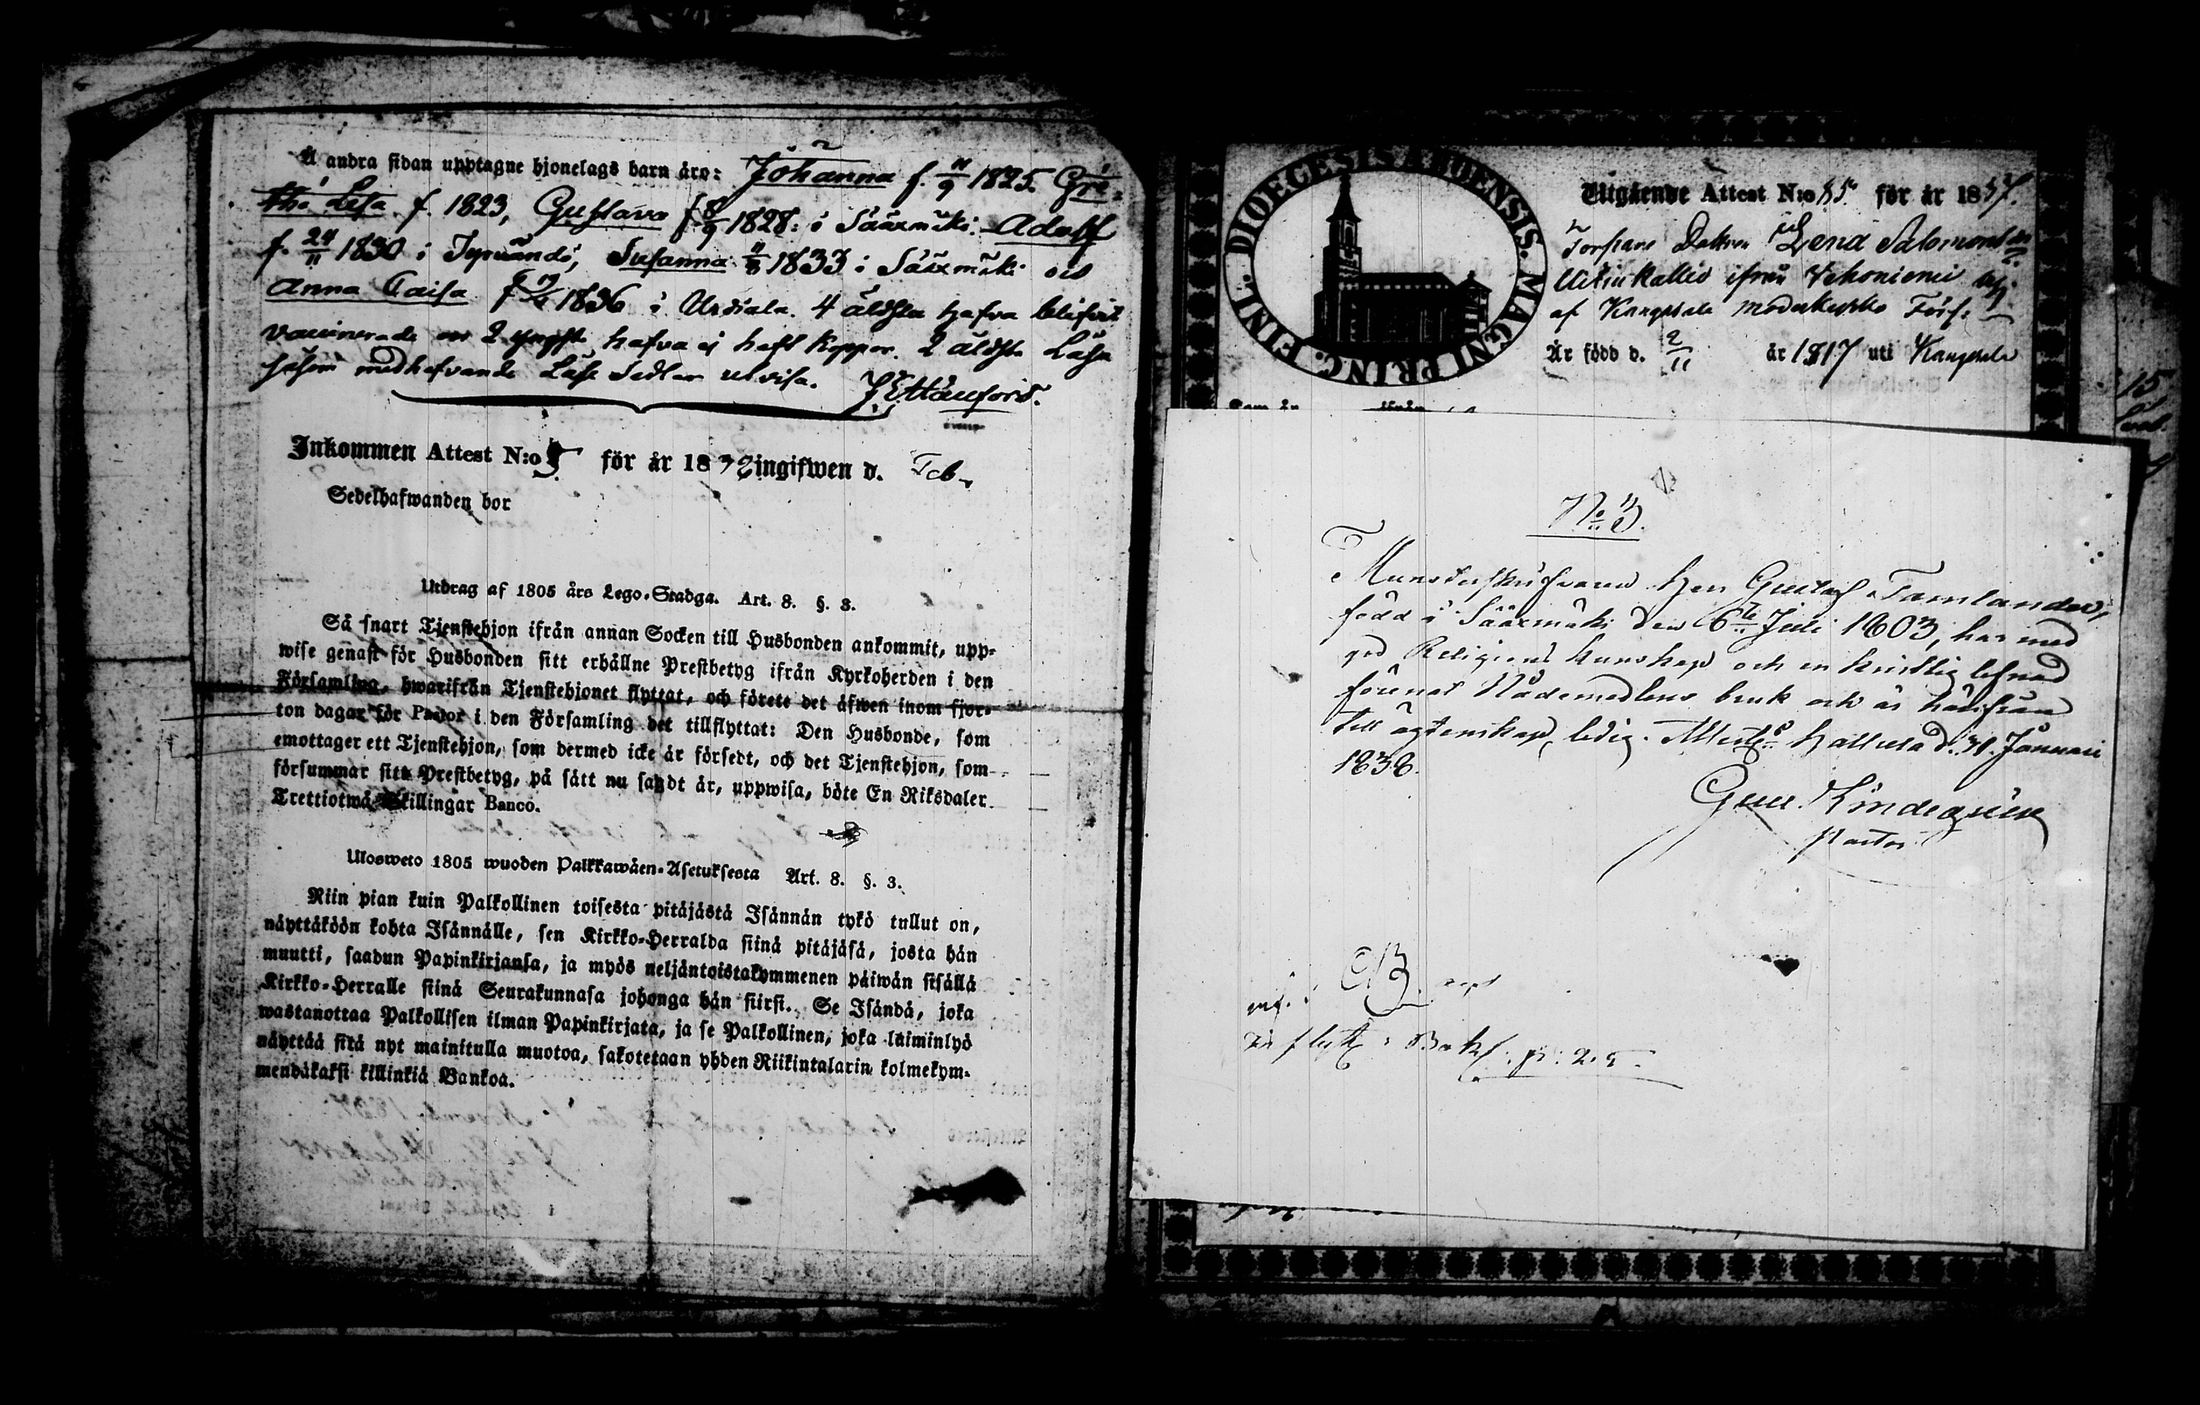 Å andra sidan upptagne hjonelags barn äro: Johanna f. 11/9 1825. Gre-
tha Lisa f. 1823, Gustava f. 8/9 1828: i Sääxmäki. Adolf
f. 24/11 1830 i Tyrvändö, Susanna 1833 i Sääxmäki och
Anna Caisa 1836 i Urdiala. 4 äldsta hafva blifvit
vaccinerade 2 hafva ej haft koppor. 2 äldsta Läsa
såsom medhafvande Läse Sedlar utvisa.
Inkommen Attest N:o 5 för år 1838 ingifwen d. Feb.
Sedelhafwanden bor
Utdrag af 1805 års Lego-Stadga. Art. 8. §. 3.
Så snart Tjenstehjon ifrån annan Socken till Husbonden ankommit, upp-
wise genast för Husbonden sitt erhållne Prestbetyg ifrån Kyrkoherden i den
Församling, hwarifrån Tjenstehjonet flyttat, och förete det äfwen inom fjor-
ton dagar för Pastor i den Församling det tillflyttat: Den Husbonde, som
emottager ett Tjenstehjon, som dermed icke är försedt, och det Tjenstehjon, som
försummar sitt Prestbetyg, på sätt nu sagdt är, uppwisa, böte En Riksdaler
Trettiotwå Skillingar Banco.
Ulosweto 1805 wuoden Palkkawäen-Asetuksesta Art. 8. §. 3.
Niin pian kuin Palkollinen toisesta pitäjästä Isännän tykö tullut on,
näyttäköön kohta Isännälle, sen Kirkko-Herralda siinä pitäjäsä, josta hän
muutti, saadun Papinkirjansa, ja myös neljäntoistakymmenen päiwän sisällä
Kirkko-Herralle siinä Seurakunnasa johonga hän siirsi. Se Isändä, joka
wastanottaa Palkollisen ilman Papinkirjata, ja se Palkollinen, joka laiminlyö
näyttää sitä nyt mainitulla muotoa, sakotetaan yhden Riikintalarin kolmekym-
mendäkaksi killinkiä Bankoa.
DIOECESIS ABOENSIS. MAGNI PRINC. FINL.
Utgående Attest N:o 55 för år 1837.
Torpare Dottren Lena Salomons dr
ifrån Vehoniemi by
af Kangasala moderkyrko Förs:
Är född d. 2/11 år 1817 uti Kangasala
No 3.
Munsterskrifvaren Herr Gustaf Tamlander,
född i Sääxmäki den 6te Juli 1803, har med
god Religions kunskap och en kristlig lefnad
förenat Nådemedlens bruk och är härifrån
till ägtenskap ledig. Attest. Kallvola d. 31 Januari
1838.
Pastor
p: 25